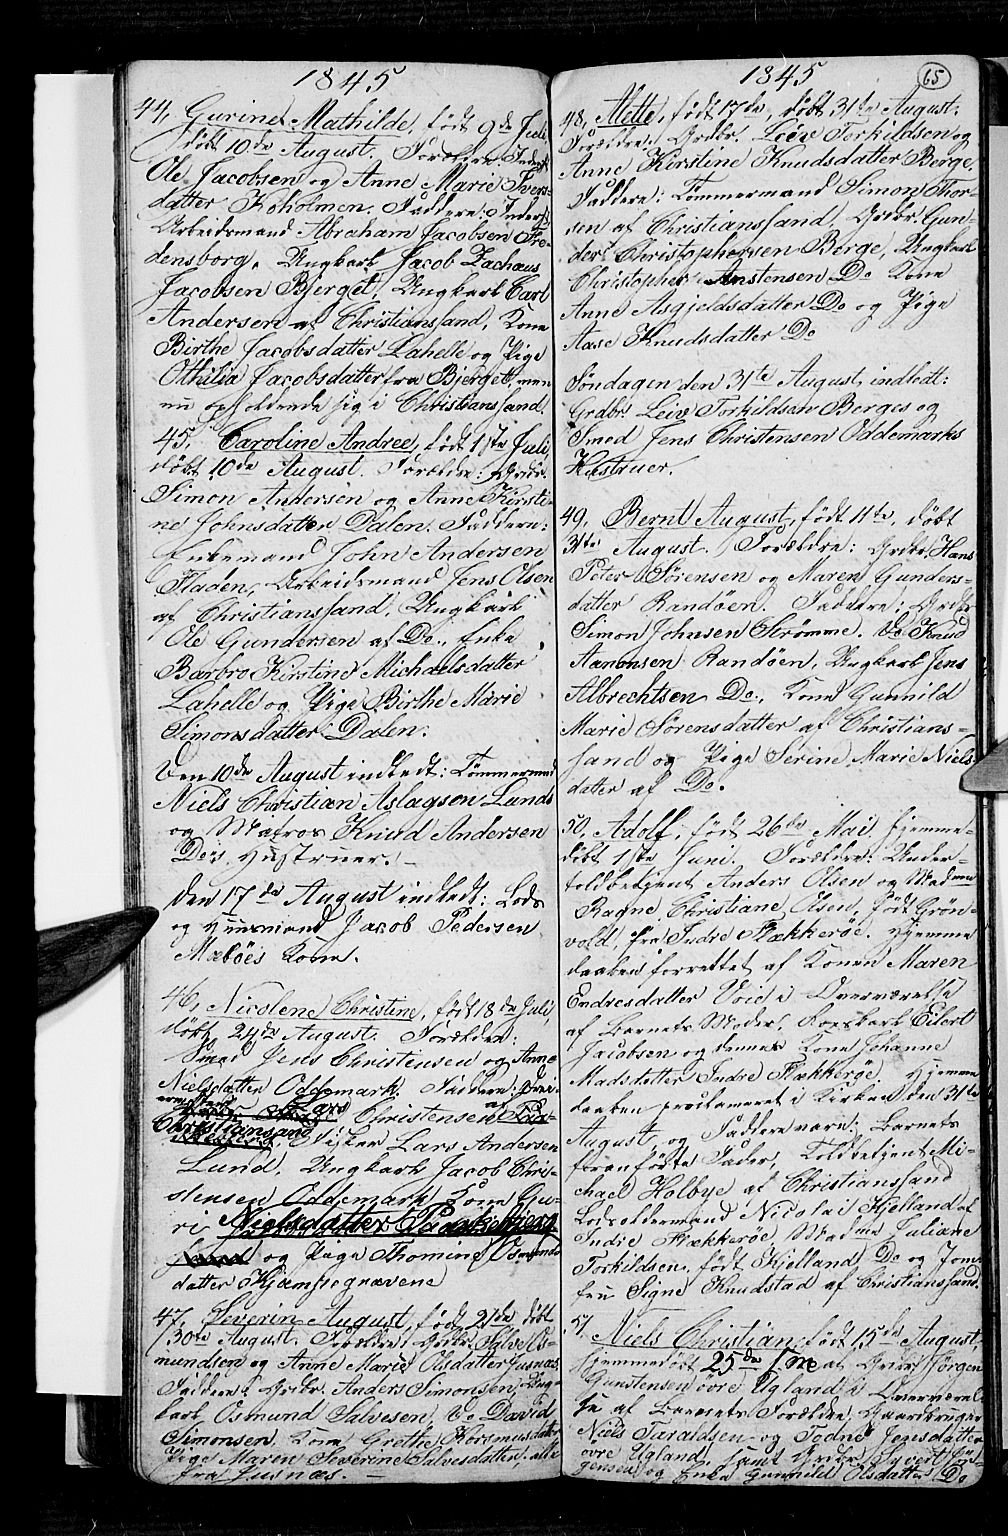 1845
44, Gurine Mathilde, født 9de Juli,
døbt 10de August. Forældre: Inderst
Ole Jacobsen og Anne Marie Ivers-
datter Koholmen. Faddere: Inderst
Arbeidsmand Abraham Jacobsen Fre-
densborg, Ungkarl Jacob Zachæus
Jacobsen Bjerget, Ungkarl Carl
Andersen af Christianssand, Kone
Birthe Jacobsdatter Lahelle og Pige
Othilia Jacobsdatter fra Bjerget, men
nu opholdende sig i Christianssand.
45, Caroline Andree, født 17te Juli,
døbt 10de August. Forældre: Grdbr.
Simon Andersen og Anne Kirsti-
ne Johnsdatter Dalen. Faddere:
Enkemand John Andersen
Fladen, Arbeidsmand Jens Olsen
af Christianssand, Ungkarl
Ole Gundersen af Do., Enke
Barbro Kirstine Michaelsdatter
Lahelle og Pige Birthe Marie
Simonsdatter Dalen.
Den 10de August indledt: Tømmermand
Niels Christian Aslagsen Lunds
og Matros Knud Andersen
Do's Hustruer. -
Den 17de August indledt: Lods
og Huusmand Jacob Pedersen
Mæbøes Kone.
46, Nicolene Christine, født 18de Juli,
døbt 24de August. Forældre:
Smed Jens Christensen og Anne
Nielsdatter Oddemark. Faddere:
Lars Christensen af
Christianssand, Fisker Lars Andersen
Lund, Ungkarl Jacob Chri-
stensen Oddemark, Kone Gu-
ri Nielsdatter
og Pige Thomine Osmunds-
datter Kjempegravene
47, Severin August, født 21de døbt
30te August. Forældre: Grdbr. Salve Os-
mundsen og Anne Marie Olsdatter Fusnæs.
Faddere: Grdbr. Anders Simonsen, Ung-
karl Osmund Salvesen, Do David
Simonsen, Kone Grethe Rorsmusdatter
Pige Maren Severine Salvesdatter, alle
fra Fusnæs. -
1845
65
48, Mette, født 17de, døbt 31te August.
Forældre: Grdbr. Leiv Torkildsen og
Anne Kirstine Knudsdatter Berge.
Faddere: Tømmermand Simon Thor-
sen af Christianssand, Grdbr. Gun-
der Christophersen Berge, Ungkarl
Christopher Anstensen Do Kone
Anne Asgjeldsdatter Do og Pige
Aase Knudsdatter Do
Søndagen den 31te August, indledt:
Grdbr. Leiv Torkildsen Berges og
Smed Jens Christensen Oddemarks
Hustruer.
49, Bernt August, født 11te, døbt
31te August. Forældre: Grdbr. Hans
Peter Sørensen og Maren Gunders-
datter Randøen. Faddere: Grdbr.
Simon Johnsen Strømme. Do Knud
Aamonsen Randøen, Ungkarl Jens
Albrechtsen Do., Kone Gunnild
Marie Sørensdatter af Christians-
sand og Pige Serine Marie Niels-
datter af Do.
50, Adolf, født 26de Mai, hjemme-
døbt 1ste Juni. Forældre: Under-
toldbetjent Anders Olsen og Madme
Ragne Christiane Olsen, født Grøn-
vold, fra Indre Flækkerøe. Hjemme
daaben forrettet af Konen Maren
Endresdatter Voie i Overværelse
af Barnets Moder, Eilert
Jacobsen og dennes Kone Johanne
Madsdatter Indre Flækkerøe. Hjemme
daaben proclameret i Kirken den 31te
August, og Faddere vare: Barnets
foranførte Fader, Toldbetjent Mi-
chael Holbye af Christianssand
Lodsoldermand Nicolai Kjelland af
Indre Flækkerøe, Madme Juliane
Torkildsen, født Kjelland Do og Jom-
fru Signe Knudstad af Christianssand.
51, Niels Christian, født 15de August,
hjemmedøbt 25de s. M. af Grdbr. Jørgen
Gunstensen øvre Ugland i Overværel-
se af Barnets Forældre, Gaardbruger
Niels Taraldsen og Todne Jensdatter
øvre Ugland, samt Grdbr. Syvert Jør-
gensen og Enke Gunnild Olsdatter Do